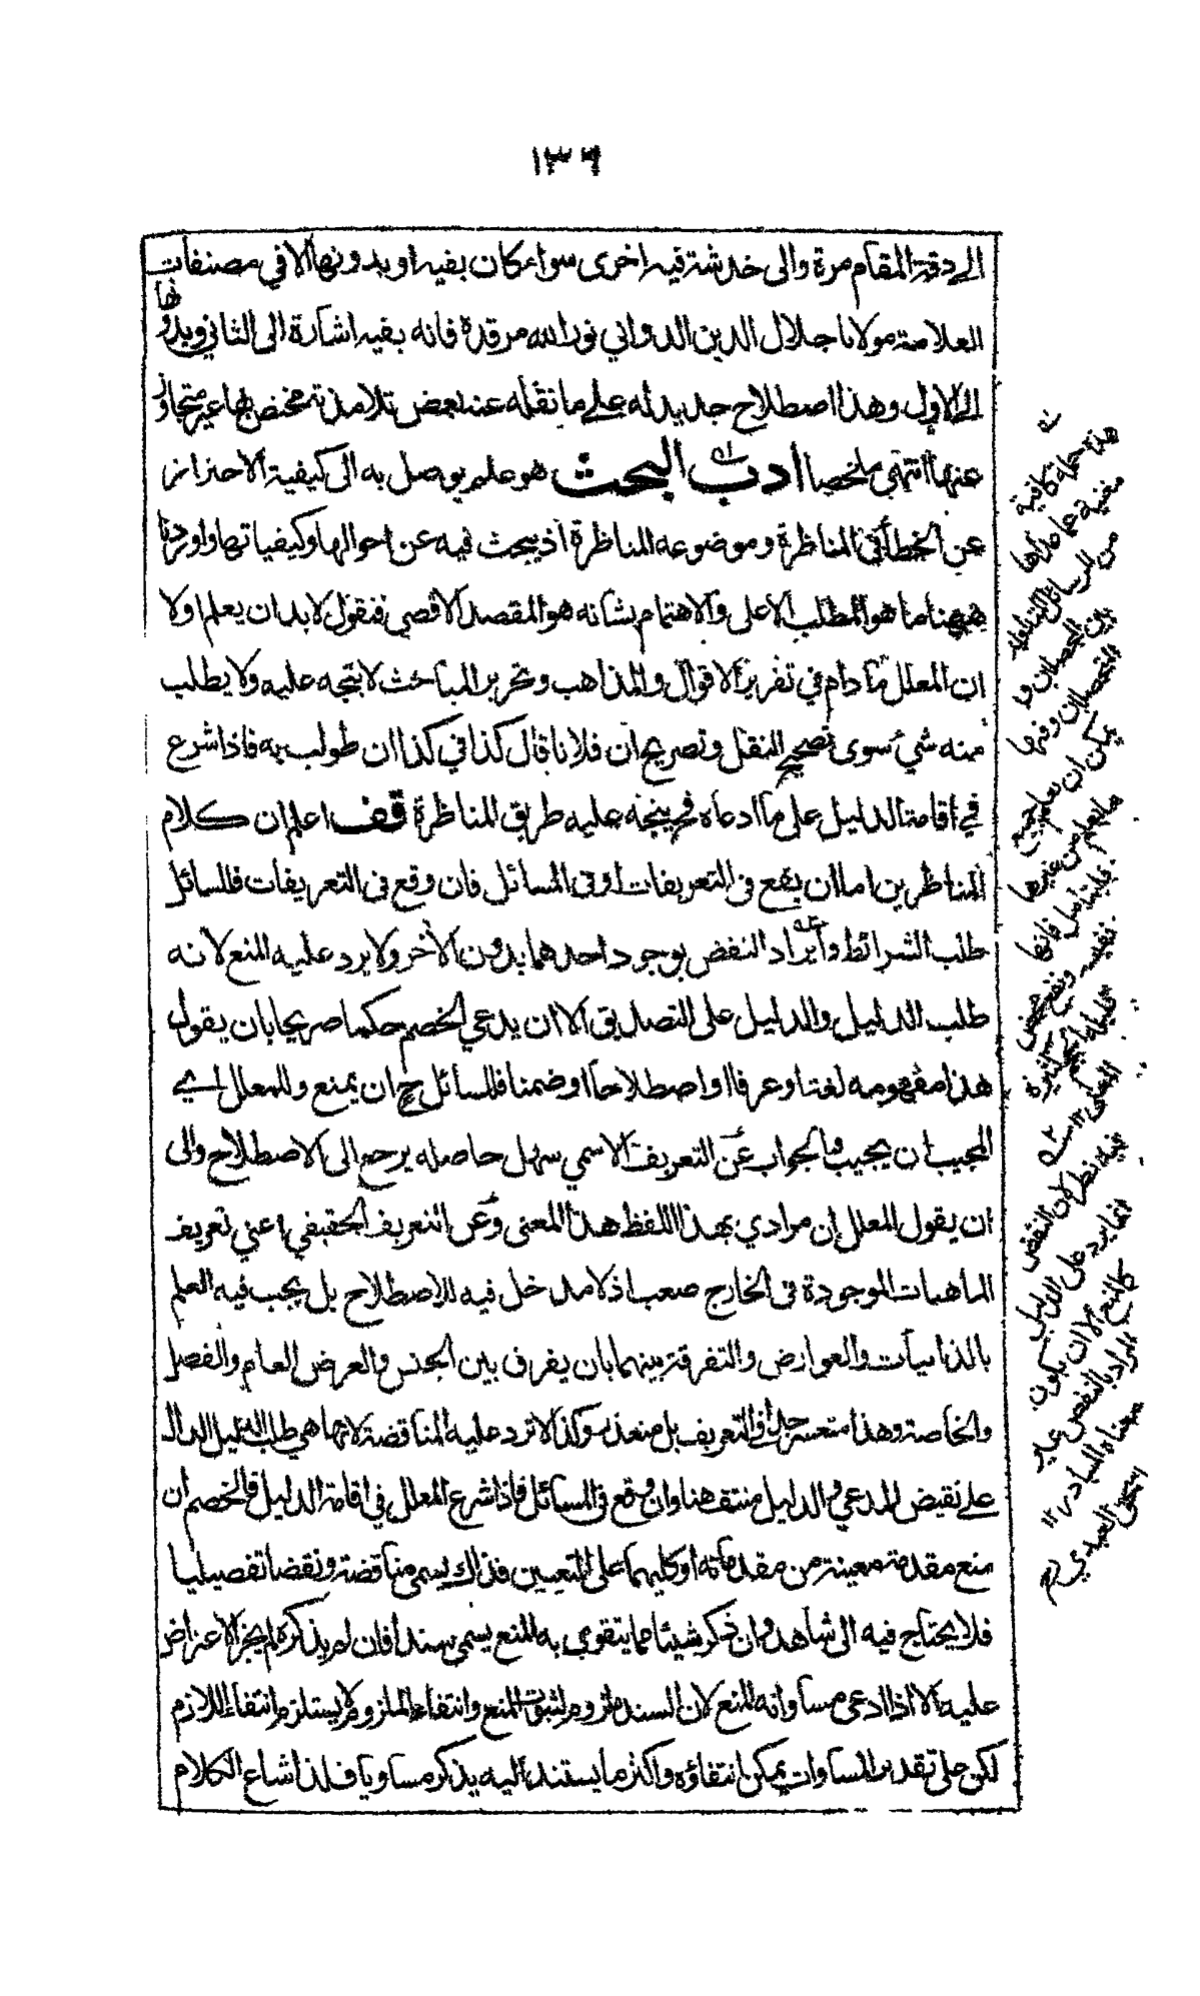 ١٣٦
الى دقة المقام مرة والى خدشة فيه اخرى سواء كان بفيه او بدونها الا في مصنفات
العلامة مولانا جلال الدين الدواني نور الله مرقده فانه بفيه اشارة الى الثاني وبدونها
الى الاول وهذا اصطلاح جديد له على ما نقله عنه بعض تلامذته مختص بها غير متجاوز
عنها انتهى ملخصا ادب البحث هو علم يوصل به الى كيفية الاحتراز
عن الخطأ في المناظرة وموضوعه المناظرة اذ يبحث فيه عن احوالها وكيفياتها واوردنا
ههنا ما هو المطلب الاعلى والاهتمام بشانه هو المقصد الاقصى فنقول لا بد ان يعلم اولا
ان المعلل ما دام في تقرير الاقوال والمذاهب وتحرير المباحث لا يتجه عليه ولا يطلب
منه شيء سوى تصحيح النقل وتصريح ان فلانا قال كذا في كذا ان طولب به فاذا شرع
في اقامة الدليل على ما ادعاه فح يتجه عليه طريق المناظرة قف اعلم ان كلام
المناظرين اما ان يقع في التعريفات او في المسائل فان وقع في التعريفات فللسائل
طلب الشرائط وايراد النقض بوجود احدهما بدون الاخر ولا يرد عليه المنع لانه
طلب الدليل والدليل على التصديق الا ان يدعي الخصم حكما صريحا بان يقول
هذا مفهومه لغة او عرفا او اصطلاحا او ضمنا فللسائل ح ان يمنع وللمعلل اي
المجيب ان يجيب والجواب عن التعريف الاسمي سهل حاصله يرجع الى الاصطلاح والى
ان يقول المعلل ان مرادي بهذا اللفظ هذا المعنى وعن التعريف الحقيقي اعني تعريف
الماهيات الموجودة في الخارج صعب اذ لا مدخل فيه للاصطلاح بل يجب فيه العلم
بالذاتيات والعوارض والتفرقة بينهما بان يفرق بين الجنس والعرض العام والفصل
والخاصة وهذا متعسر جدا في التعريف بل متعذر وكذا لا ترد عليه المناقضة لانها هي طلب الدليل الدال
على نقيض المدعي والدليل منتف هنا وان وقع في المسائل فاذا شرع المعلل في اقامة الدليل فالخصم ان
منع مقدمة معينة من مقدماته او كليهما على التعيين فذلك يسمى مناقضة ونقضا تفصيليا
فلا يحتاج فيه الى شاهد وان ذكر شيئا مما يتقوى به المنع يسمى سندا فان لم يذكره لم يجز الاعتراض
عليه الا اذا ادعى مساواته المنع لان السند ملزوم لثبوت المنع وانتفاء الملزوم لا يستلزم انتفاء اللازم
لكن على تقدير المساوات يمكن انتفاؤه واكثر ما يستند اليه يذكر مساويا فلذا شاع الكلام
هذه جملة كافية
مغنية عما عداها
من الرسائل
فيه نظر لان النقض
انما يرد على الدليل
كالمنع الا ان يكون
المراد بالنقض غير
معناه المتبادر